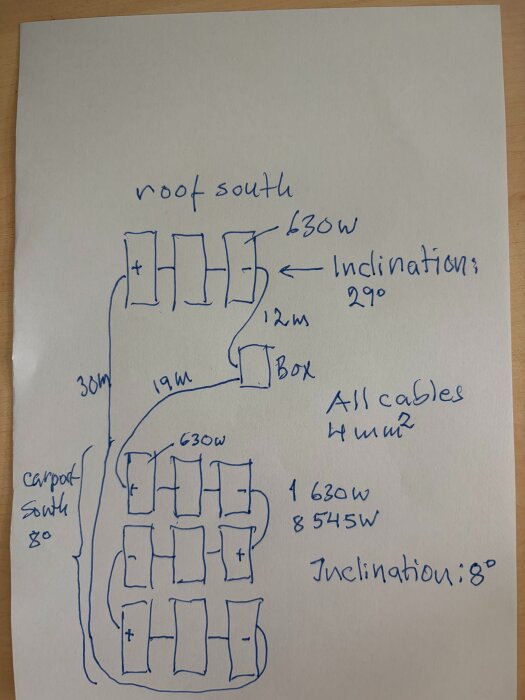 roof south
630W
+
-
Inclination:
29°
12m
Box
30m
19m
All cables
4mm²
630W
carport
South
8°
+
-
1 630W
8 545W
-
+
Inclination: 8°
+
-